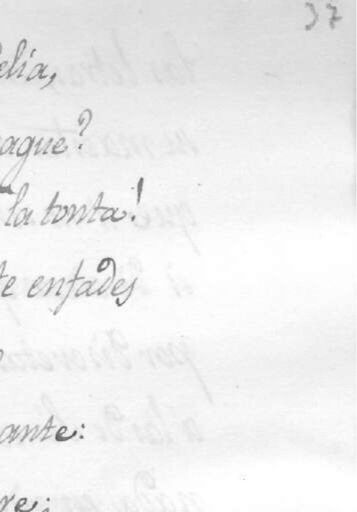 37
elia,
ague?
la tonta!
te enfades
ante:
re;